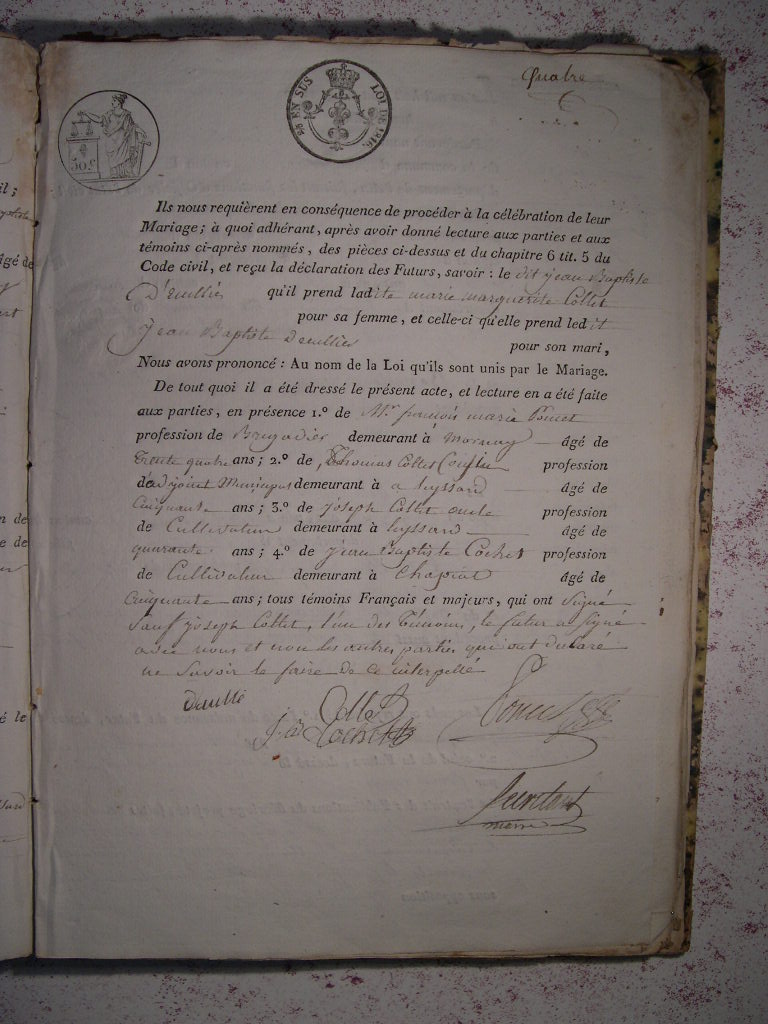 Quatre
50 c
EN SUS LOI DE 1816
Ils nous requièrent en conséquence de procéder à la célébration de leur
Mariage; à quoi adhérant, après avoir donné lecture aux parties et aux
témoins ci-après nommés, des pièces ci-dessus et du chapitre 6 tit. 5 du
Code civil, et reçu la déclaration des Futurs, savoir : le dit jean Baptiste
qu'il prend ladite marie marguerite Collet
pour sa femme, et celle-ci qu'elle prend ledit
jean Baptiste pour son mari,
Nous avons prononcé : Au nom de la Loi qu'ils sont unis par le Mariage.
De tout quoi il a été dressé le présent acte, et lecture en a été faite
aux parties, en présence 1.º de Mr françois marie
profession de Brigadier demeurant à Mornay âgé de
trente quatre ans; 2.º de Thomas Collet Cousin profession
d'adjoint demeurant à a hyssard âgé de
Cinquante ans; 3.º de joseph Collet oncle profession
de Cultivateur demeurant à hyssard âgé de
quarante ans; 4.º de jean Baptiste Cochet profession
de Cultivateur demeurant à Chapiat âgé de
Cinquante ans; tous témoins Français et majeurs, qui ont Signé
Sauf joseph Collet, l'un des témoins, le futur a Signé
avec nous et non les autres parties qui ont déclaré
ne Savoir le faire de ce interpellé
Collet
j. B Cochet
Secretant
maire